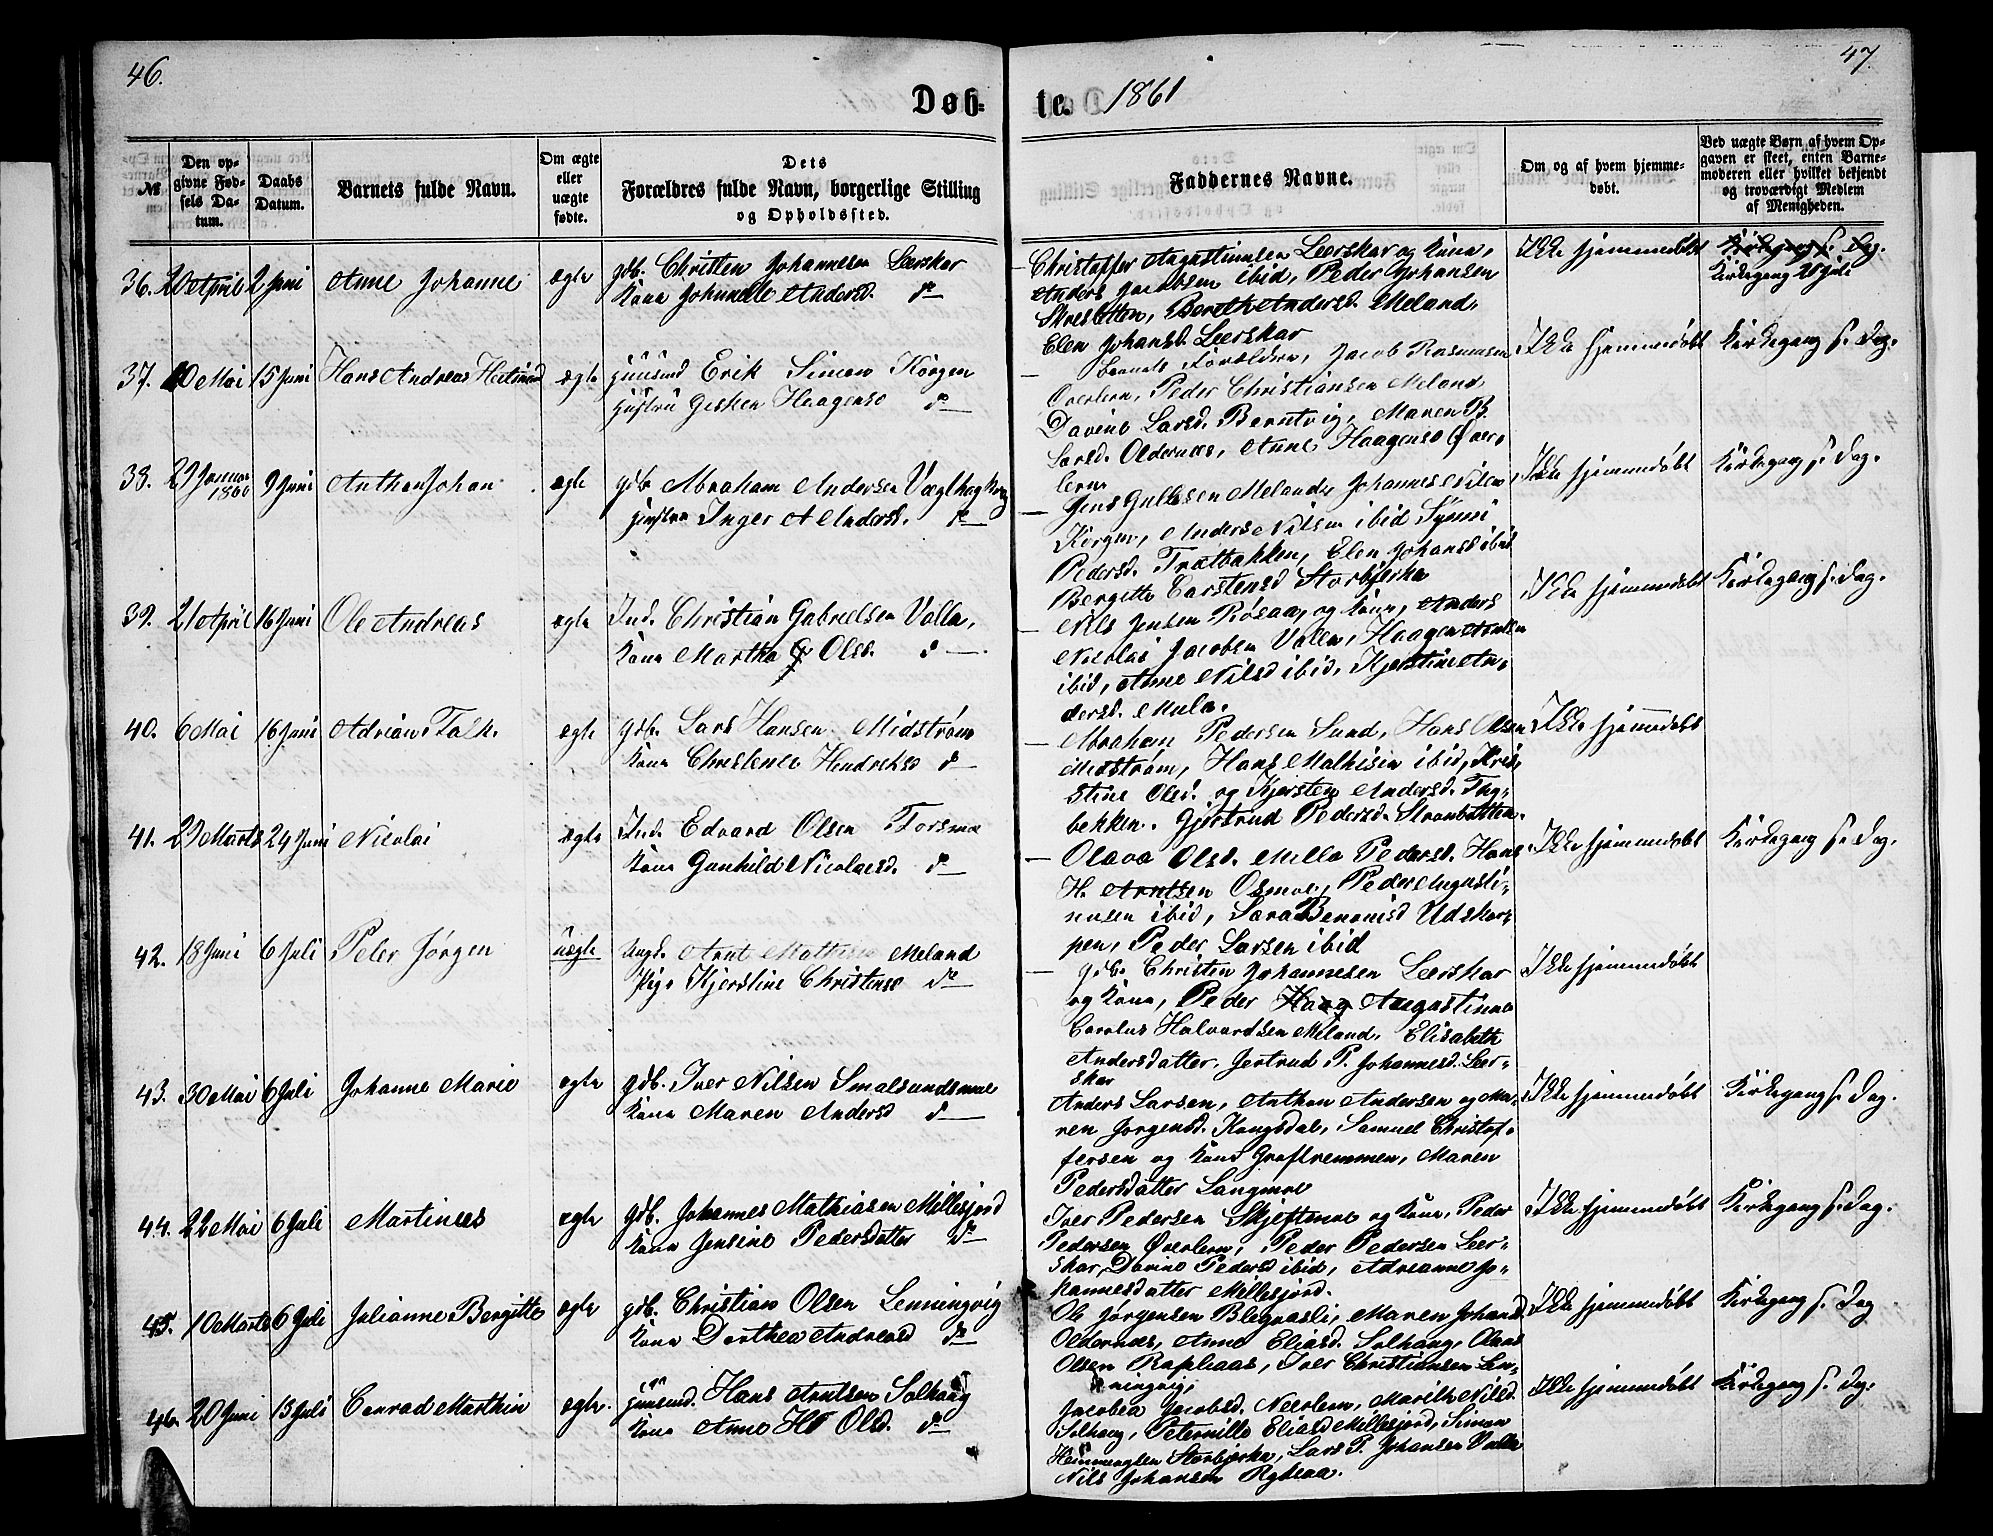 46.
47.
Døb-
te. 1861
№
Den op-
givne Fød-
sels Da-
tum.
Daabs
Datum.
Barnets fulde Navn.
Om ægte
eller
uægte
fødte.
Dets
Forældres fulde Navn, borgerlige Stilling
og Opholdssted.
Faddernes Navne.
Om og af hvem hjemme-
døbt.
Ved uægte Børn af hvem Op-
gaven er skeet, enten Barne-
moderen eller hvilket bekjendt
og troværdigt Medlem
af Menigheden.
36. 20 April 2 Juni Anne Johanne ægte gdb. Christen Johannesen Leerskar
Kone Johanne Andersd. do
Christopher Augustinusen Leerskar og Kone,
Anders Jacobsen ibid, Peder Johansen
Skresletten, Bereth Andersd. Meland,
Elen Johansd. Leerskar
Ikke hjemmedøbt
Kirkegang s. Dag.
Kirkegang 28 Juli
37. 10 Mai 15 Juni Hans Andreas ægte Huusmd Erik Simon Korgen
Hustru Gesken Haagensd do
Barnets Forældre, Jacob Rasmusen
Øverlern, Peder Christiansen Meland,
Davine Larsd. Berntvig, Maren B.
Larsd. Oldernæs, Anne Haagensd Øver-
lern
Ikke hjemmedøbt Kirkegang s. Dag.
38. 29 Januar 1860 9 Juni Anthon Johan ægte gdb Abraham Andersen
Hustru Inger A Andersd. do
Jens Gullesen Meland, Johannes Nilsen
Korgen, Anders Nilsen ibid
Pedersd. Trætbakken, Elen Johansd ibid
Bergitte Carstensd Storbjerka
Ikke hjemmedøbt Kirkegang s. Dag.
39. 21 April 16 Juni Ole Andreas ægte Ind. Christian Gabrielsen Valla,
Kone Martha Olsd. do
Nils Jensen Røsaa, og Kone, Anders
Nicolai Jacobsen Valen, Haagen
ibid, Anne Nilsd ibid, Kjerstine An-
dersd. Mula.
Ikke hjemmedøbt Kirkegang s. Dag.
40. 6 Mai 16 Juni Adrian Falk. ægte gdb. Lars Hansen Midstrøm
Kone Christence Hendriksd do
Abraham Pedersen Sund, Hans Olsen
Midstrøm, Hans Mathisen ibid, Kri-
stine Olsd. og Kjersten Andersd.
bekken. Gjertrud Pedersd.
Ikke hjemmedøbt
41. 29 Marts 24 Juni Nicolai ægte Ind. Edvard Olsen Forsmo
Kone Gunhild Nicolaisd. do
Olava Olsd. Pedersd. Hans
H. Arntsen Osmoe, Peder Augusti-
nusen ibid, Sara Benonisd Udskar-
pen, Peder Larsen ibid
Ikke hjemmedøbt Kirkegang s. Dag.
42. 18 Juni 6 Juli Peter Jørgen uægte Ungk. Arnt Mathisen Meland
Pige Kjerstine Christensd do
gdb. Christen Johannesen Leerskar
og Kone, Peder Haag Augustinus
Carolus Halvardsen Meland, Elisabeth
Andersdatter, Gertrud P. Johannesd. Leer-
skar
Ikke hjemmedøbt
43. 30 Mai 6 Juli Johanne Marie ægte gdb. Iver Nilsen Smalsundsmoe
Kone Maren Andersd do
Anders Larsen, Anthon Andersen og Ma-
ren Jørgensd. Kongsdal, Samuel Christof-
fersen og Kone Grøftremmen, Maren
Pedersdatter Langmoe
Ikke hjemmedøbt Kirkegang s. Dag.
44. 22 Mai 6 Juli Martinus ægte gdb. Johannes Mathiasen Millesjord
Kone Jensine Pedersdatter do
Iver Pedersen Skjeftemoe og Kone, Peder
Pedersen Øverlern, Peder Pedersen Leer-
skar, Davine Pedersd ibid, Adreanne Jo-
hannesdatter Millesjord.
Ikke hjemmedøbt Kirkegang s. Dag.
45. 10 Marts 6 Juli Julianne Bergitte ægte gdb. Christian Olsen Lenningvig
Kone Dorthea Andreasd do
Ole Jørgensen Blegvasli, Maren Johansd
Oldernæs, Anne Eliasd. Solhaug, Olaus
Olsen Raphaas, Iver Christiansen Len-
ningvig,
Ikke hjemmedøbt Kirkegang s. Dag
46. 20 Juni 15 Juli Conrad Marthin ægte. Huusmd. Hans Arntsen Solhaug
Kone Anne Olsd. do
Jacobea Jacobsd. Neerlern, Marith Nilsd.
Solhaug, Peternille Eliasd Millesjord, Simon
Hemmingsen Storbjerka, Lars P. Johansen Valla
Nils Johansen
Ikke hjemmedøbt Kirkegang s. Dag.